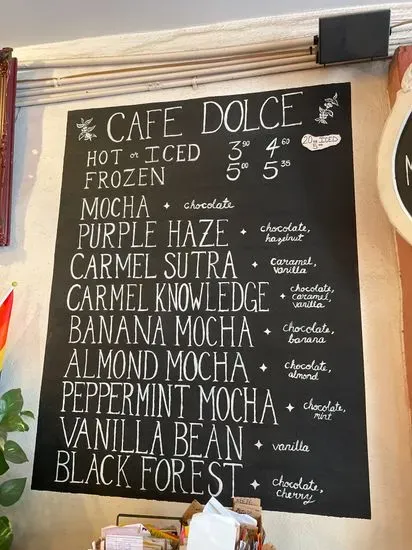 CAFE DOLCE
HOT or ICED 3⁹⁰ 4⁶⁰
20oz ICED
FROZEN 5⁰⁰ 5³⁵
MOCHA ✦ chocolate
PURPLE HAZE ✦ chocolate,
hazelnut
CARMEL SUTRA ✦ caramel,
vanilla
CARMEL KNOWLEDGE ✦ chocolate,
caramel,
vanilla
BANANA MOCHA ✦ chocolate,
banana
ALMOND MOCHA ✦ chocolate,
almond
PEPPERMINT MOCHA ✦ chocolate,
mint
VANILLA BEAN ✦ vanilla
BLACK FOREST ✦ chocolate,
cherry